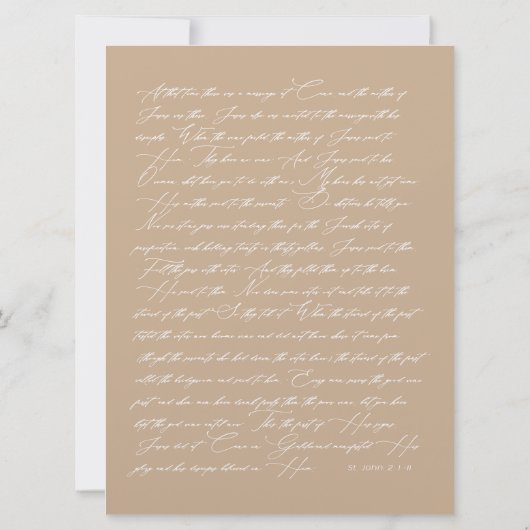 At that time there was a marriage at Cana and the mother of
Jesus was there. Jesus also was invited to the marriage with his
disciples. When the wine failed the mother of Jesus said to
Him, They have no wine. And Jesus said to her
O woman, what have you to do with me; My hour has not yet come
His mother said to the servants, Do whatever he tells you
Now six stone jars were standing there for the Jewish rites of
purification, each holding twenty or thirty gallons. Jesus said to them
Fill the jars with water. And they filled them up to the brim
He said to them, Now draw some water out and take it to the
steward of the feast. So they took it. When the steward of the feast
tasted the water now become wine and did not know where it came from
(though the servants who had drawn the water knew), the steward of the feast
called the bridegroom and said to him, Every man serves the good wine
first and when men have drunk freely then the poor wine but you have
kept the good wine until now. This, the first of His signs
Jesus did at Cana in Galilee and manifested His
glory and his disciples believed in Him. St. John 2:1-11